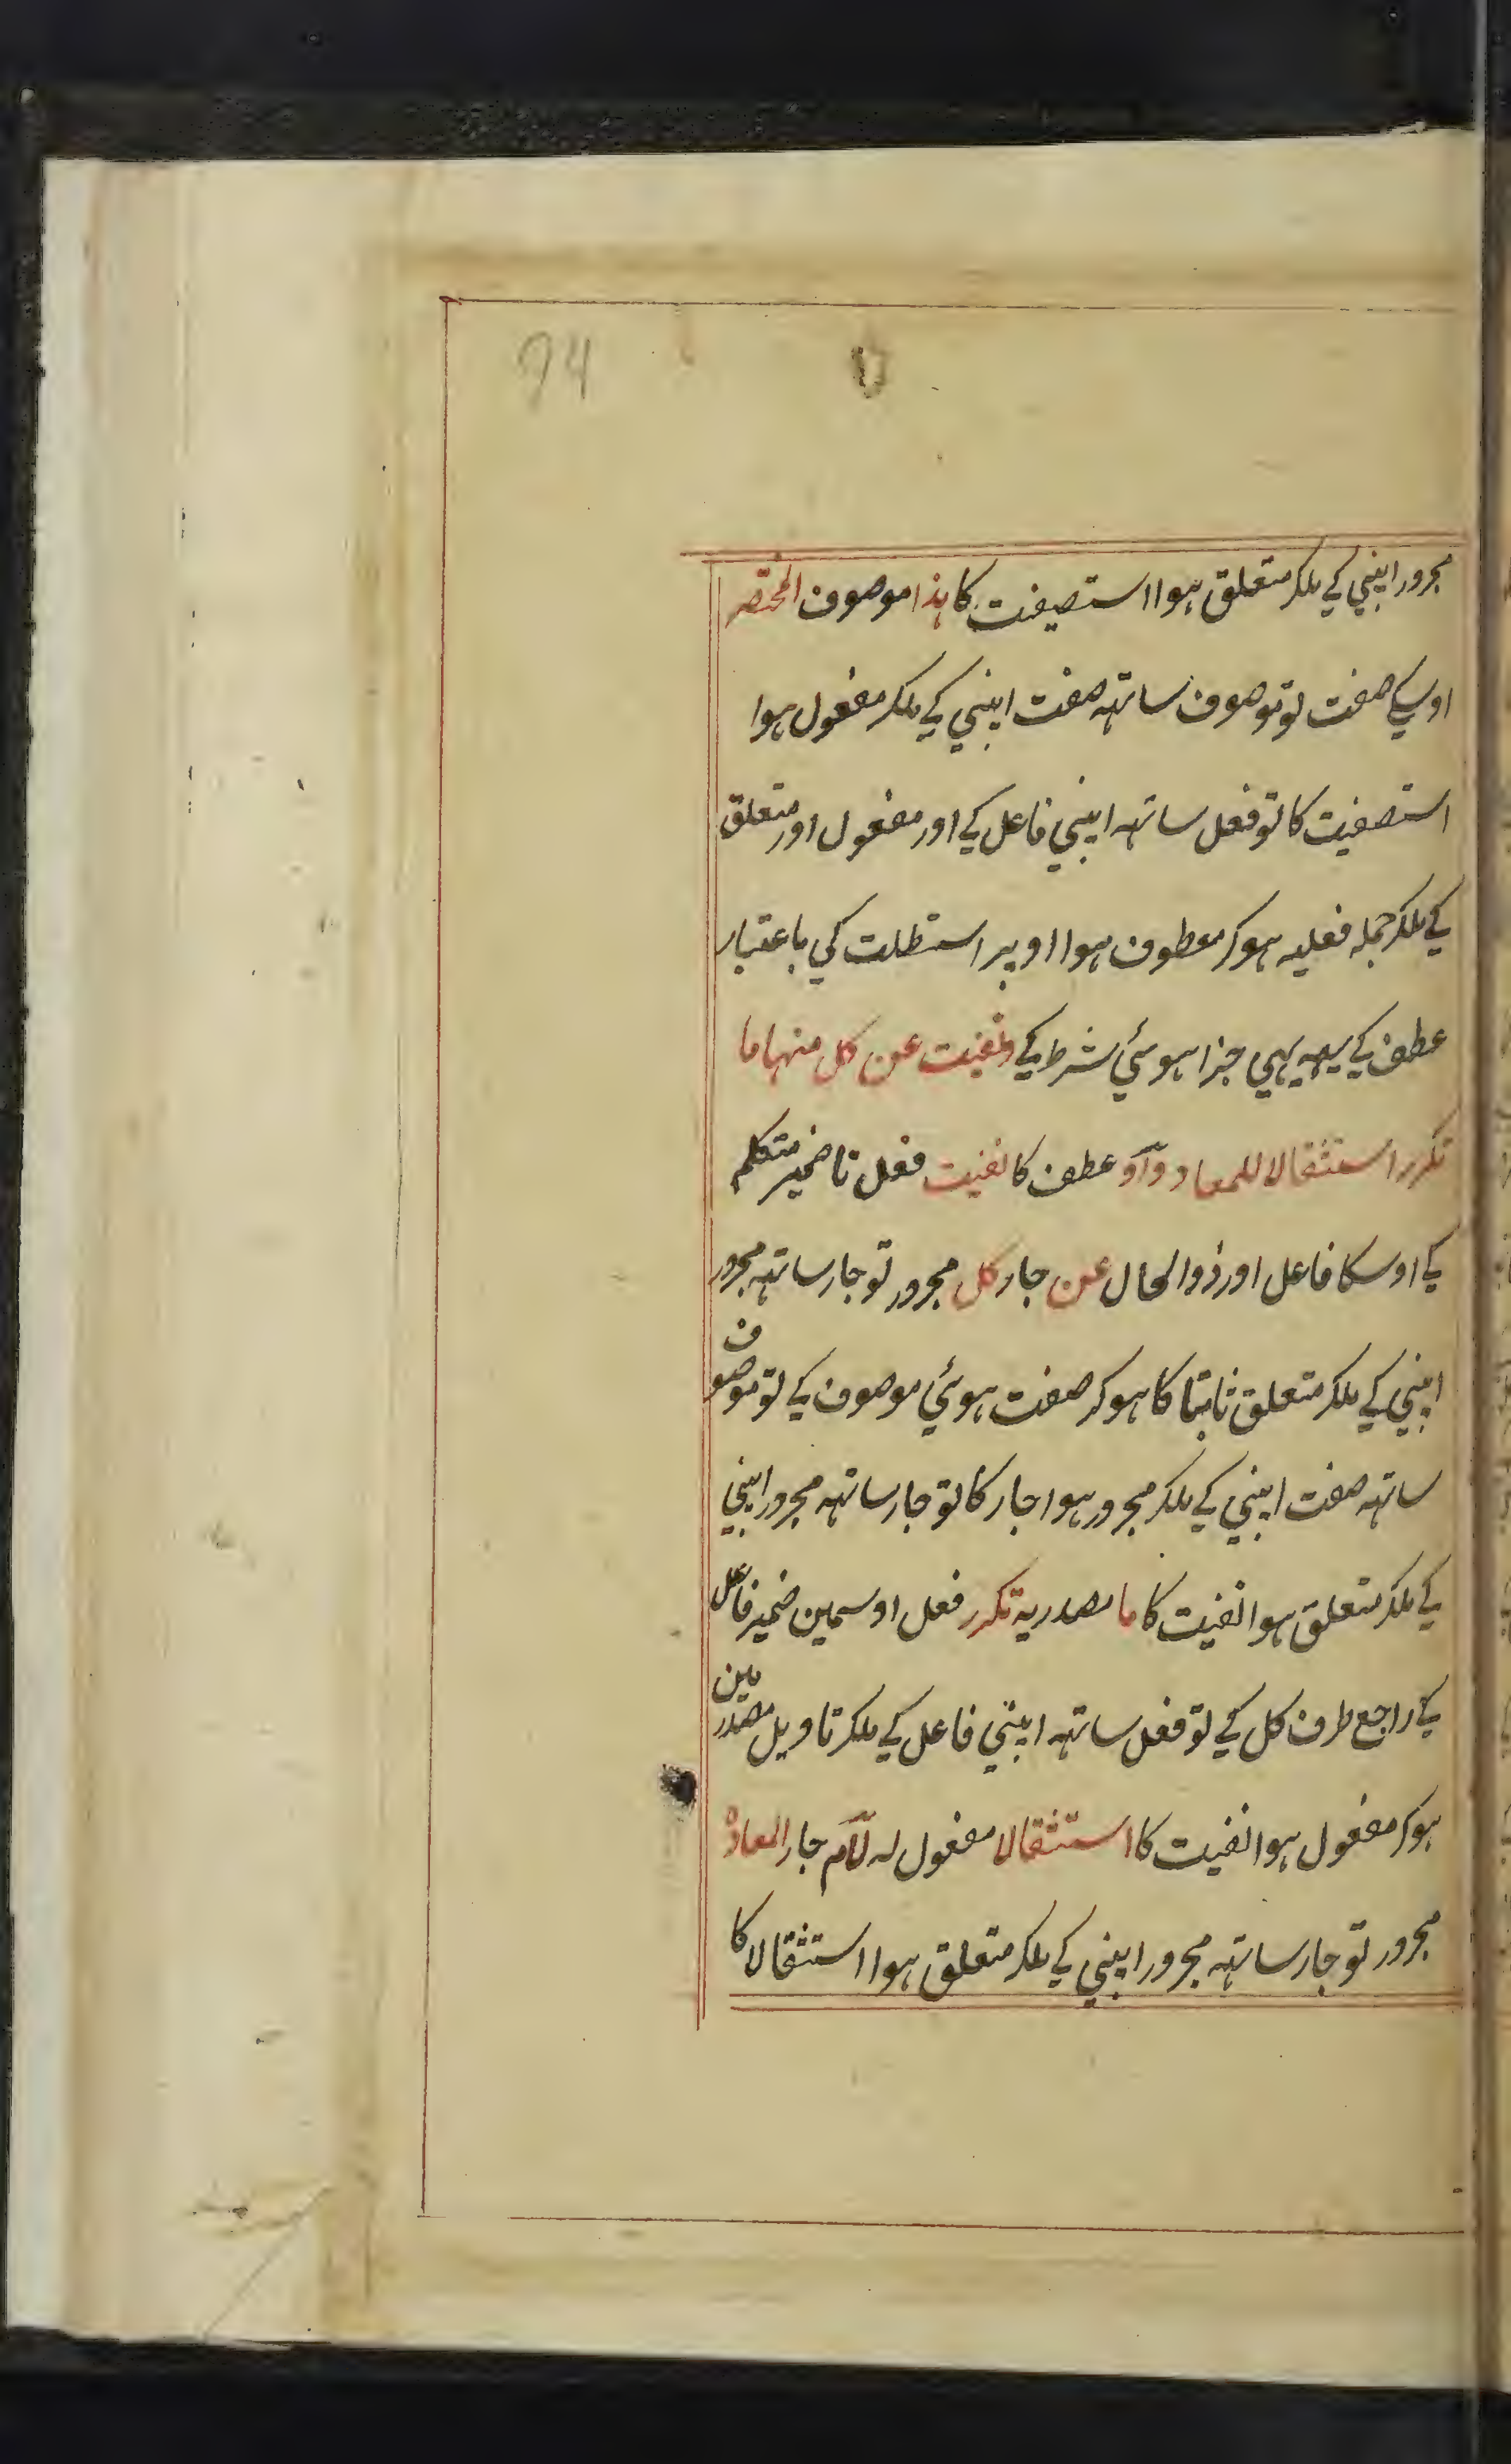 94
مجرور اپنی کے ملکر متعلق ہوا استصیفت کا ہذا موصوف المختصر
اوسکے صفت تو موصوف ساتہہ صفت اپنی کے ملکر مفعول ہوا
استصفیت کا تو فعل ساتہہ اپنی فاعل کے اور مفعول اور متعلق
کے ملکر جملہ فعلیہ ہوکر معطوف ہوا اوپر استطلت کی باعتبار
عطف کے یہہ بہی جزا ہوئی شرط کے ونفیت عن کل منہا ما
تکرر استثقالا للمعاد واو عطف کا نفیت فعل تا ضمیر متکلم
کے اوسکا فاعل اور ذوالحال عن جار کل مجرور تو جار ساتہہ مجرور
اپنی کے ملکر متعلق ثابتا کا ہوکر صفت ہوئی موصوف کے تو موصوف
ساتہہ صفت اپنی کے ملکر مجرور ہوا جار کا تو جار ساتہہ مجرور اپنی
کے ملکر متعلق ہوا نفیت کا ما مصدریہ تکرر فعل اوسمین ضمیر فاعل
کے راجع طرف کل کے تو فعل ساتہہ اپنی فاعل کے ملکر تاویل مصدر مین
ہوکر مفعول ہوا نفیت کا استثقالا مفعول لہ لام جار المعاد
مجرور تو جار ساتہہ مجرور اپنی کے ملکر متعلق ہوا استثقالا کا